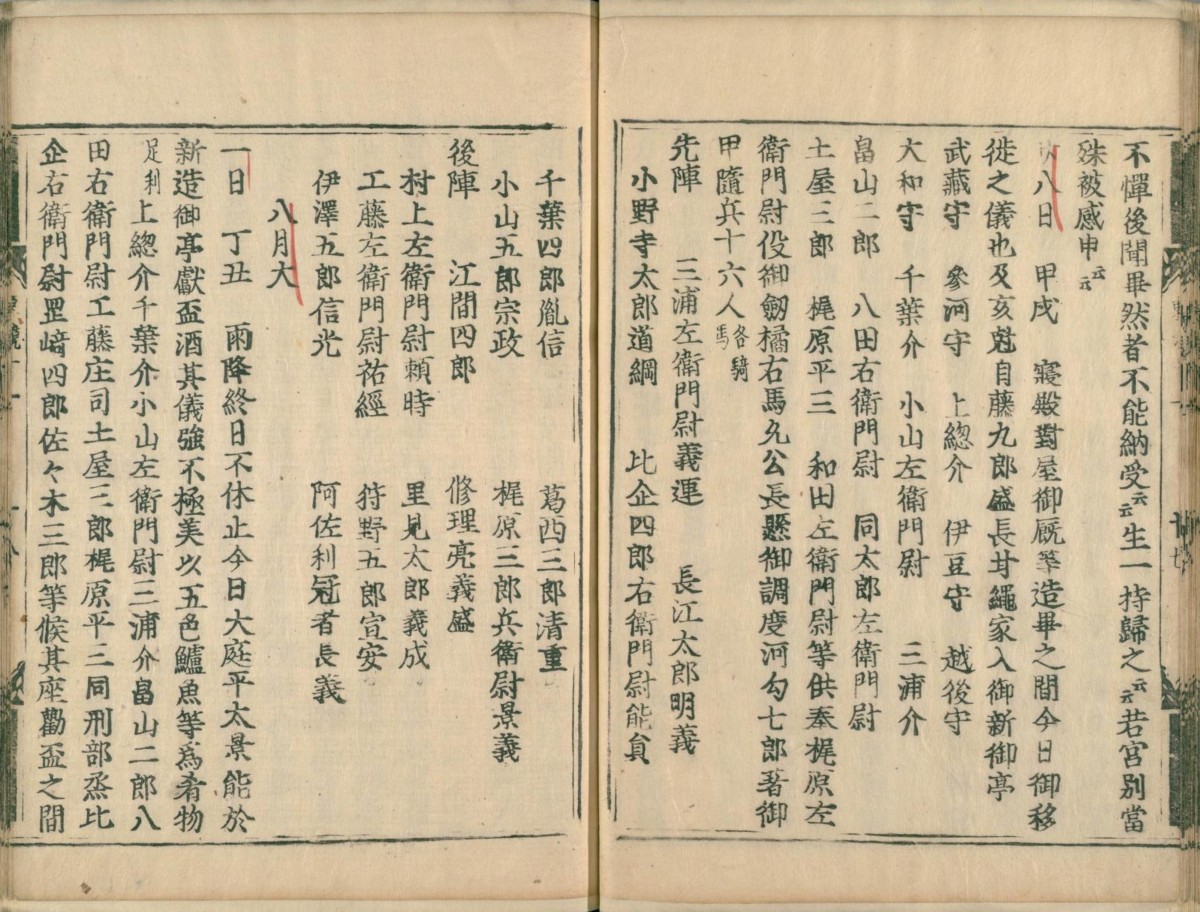 不憚後聞畢然者不能納受云云生一持歸之云云若宮別當
殊被感申云云
廿八日 甲戌 寢殿對屋御厩等造畢之間今日御移
徙之儀也及亥剋自藤九郎盛長甘繩家入御新御亭
武藏守 參河守 上總介 伊豆守 越後守
大和守 千葉介 小山左衛門尉 三浦介
畠山二郎 八田右衛門尉 同太郎左衛門尉
土屋三郎 梶原平三 和田左衛門尉等供奉梶原左
衛門尉役御劔橘右馬允公長懸御調度河勾七郎著御
甲隨兵十六人各騎馬
先陣 三浦左衛門尉義連 長江太郎明義
小野寺太郎道綱 比企四郎右衛門尉能員
千葉四郎胤信 葛西三郎清重
小山五郎宗政 梶原三郎兵衛尉景義
後陣 江間四郎 修理亮義盛
村上左衛門尉頼時 里見太郎義成
工藤左衛門尉祐經 狩野五郎宣安
伊澤五郎信光 阿佐利冠者長義
八月大
一日 丁丑 雨降終日不休止今日大庭平太景能於
新造御亭獻盃酒其儀強不極美以五色鱸魚等爲肴物
足利上總介千葉介小山左衛門尉三浦介畠山二郎八
田右衛門尉工藤庄司土屋三郎梶原平三同刑部烝比
企右衛門尉罡﨑四郎佐々木三郎等候其座勸盃之間